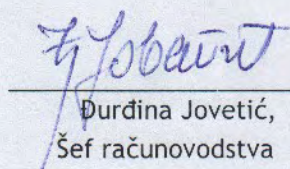 Đurđina Jovetić,
Šef računovodstva